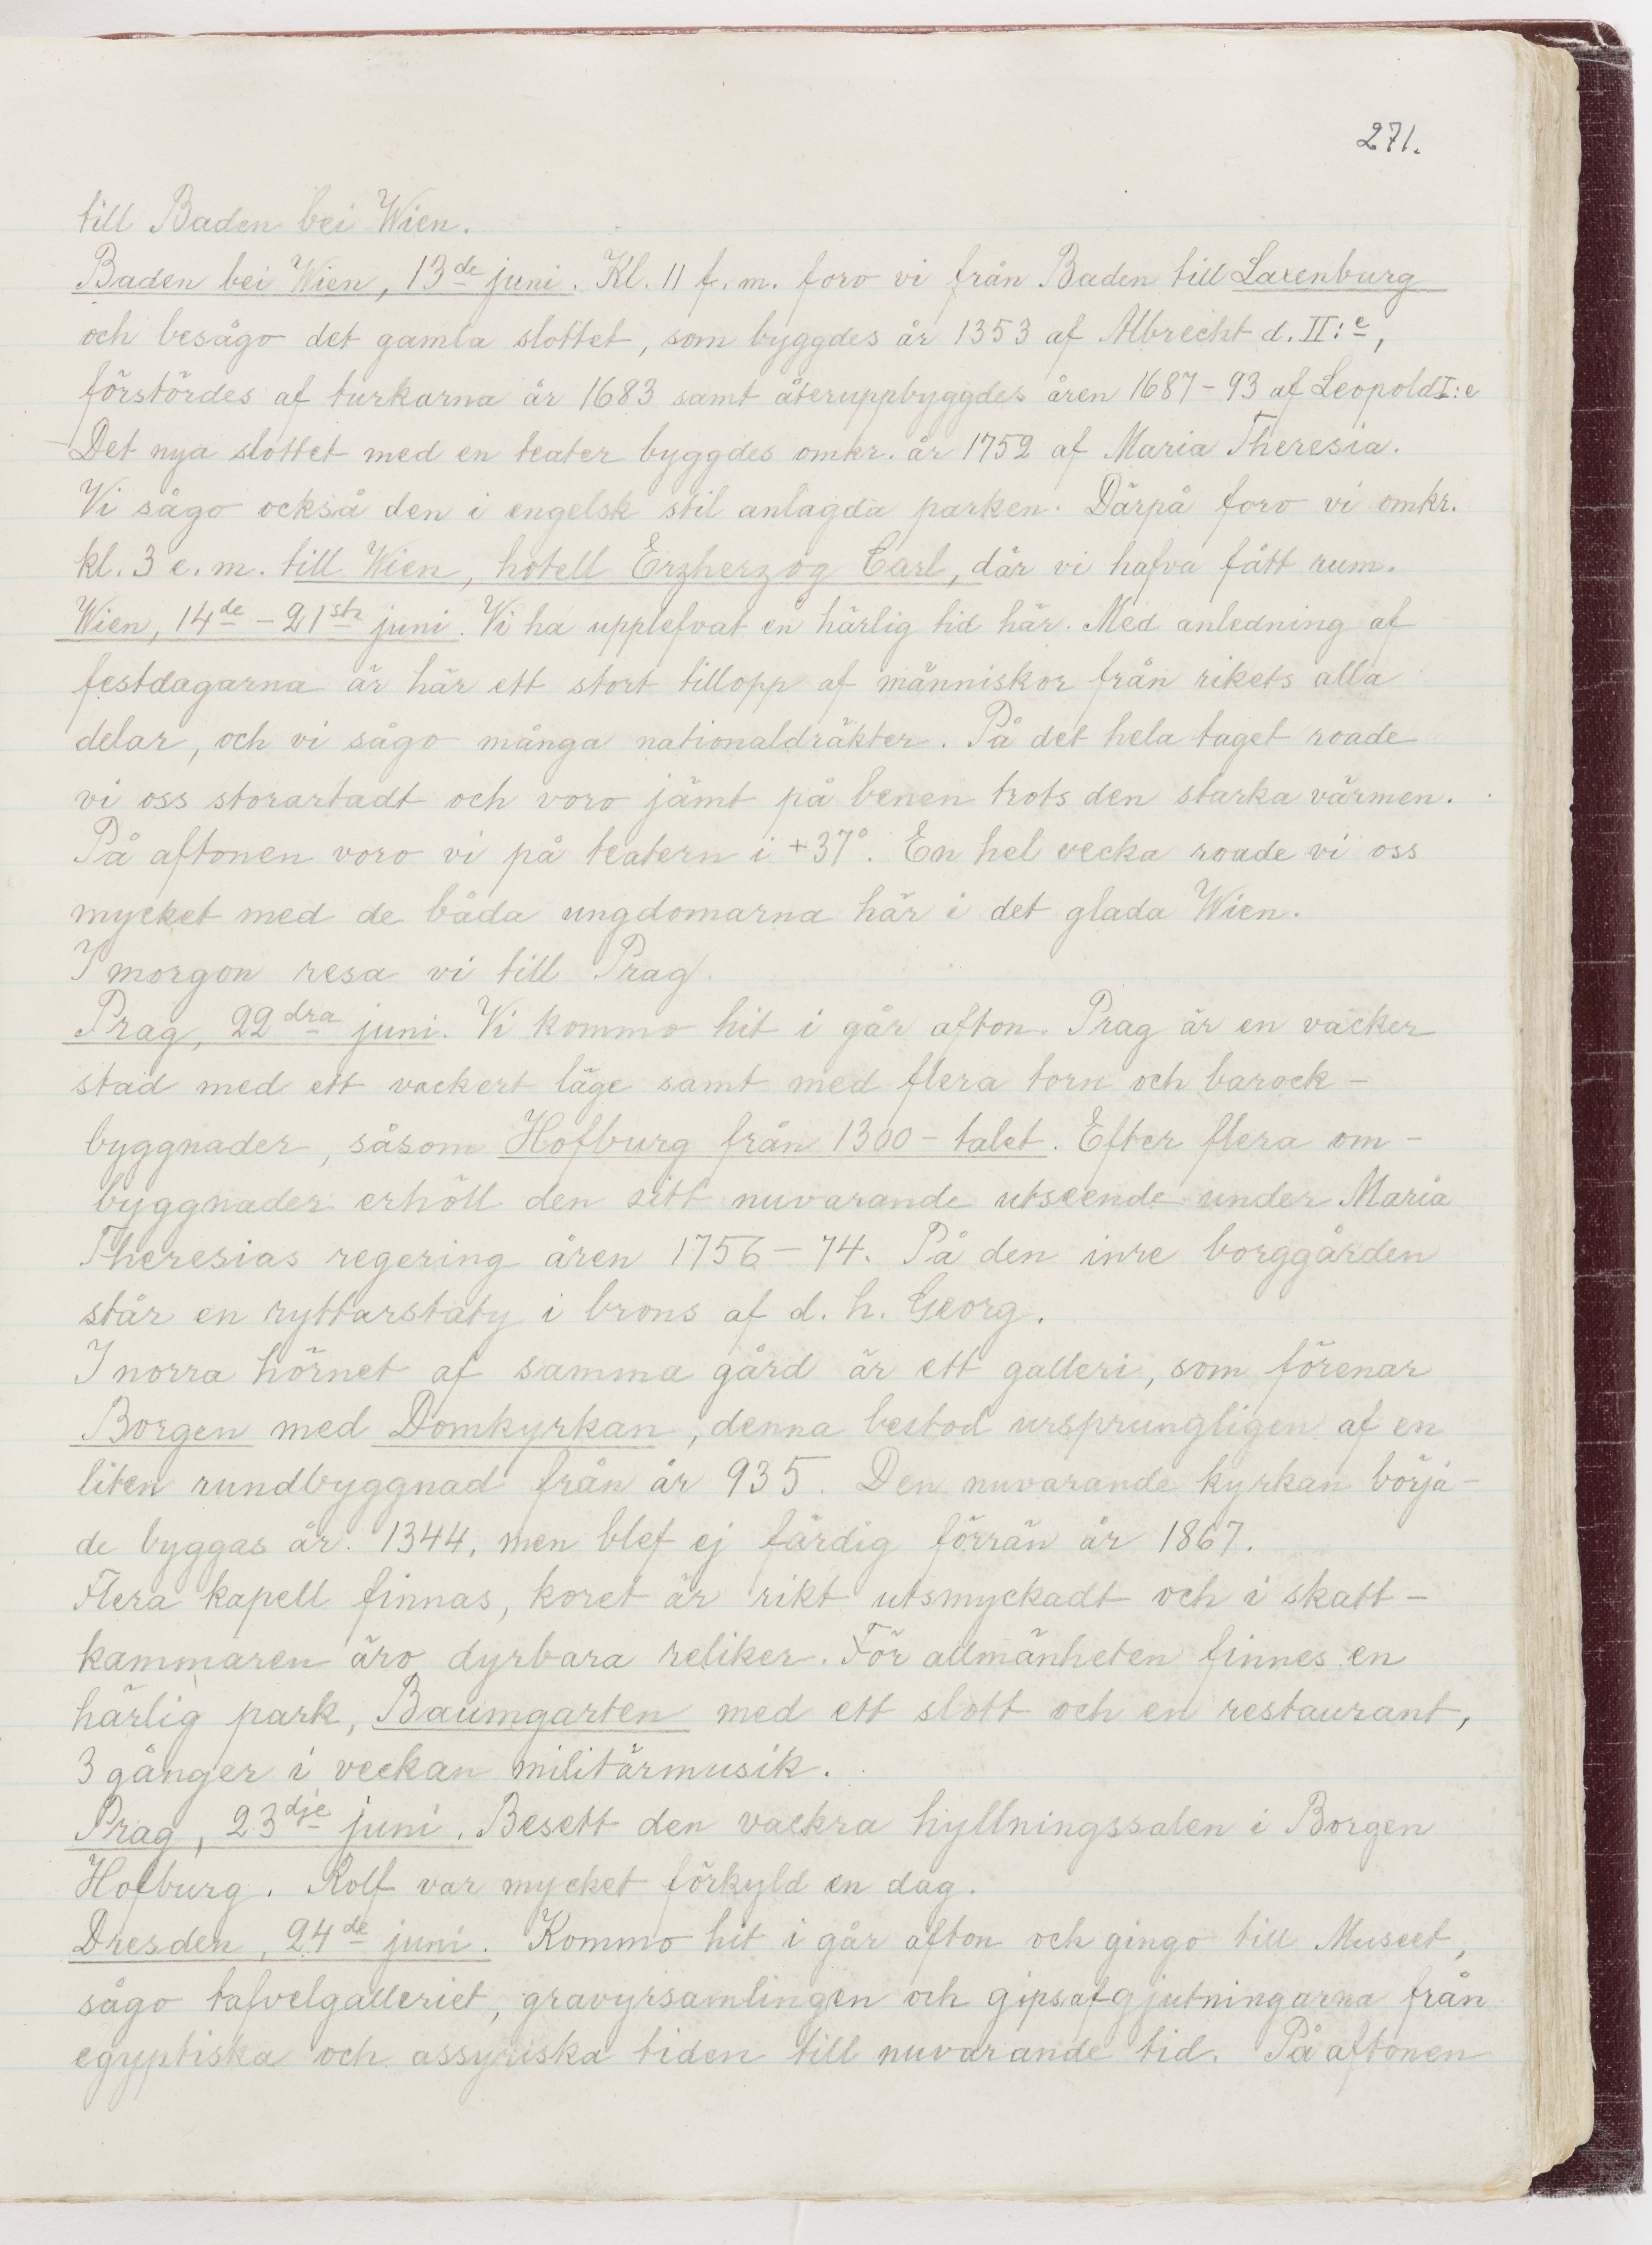 271.
till Baden bei Wien.
Baden bei Wien, 13de juni. Kl. 11 f. m. foro vi från Baden till Laxenburg
och besågo det gamla slottet, som byggdes år 1353 af Albrecht d. II:e,
förstördes af turkarna år 1683 samt återuppbyggdes åren 1687-93 af Leopold I:e
Det nya slottet med en teater byggdes omkr. år 1752 af Maria Theresia.
Vi sågo också den i engelsk stil anlagda parken. Därpå foro vi omkr.
kl. 3 e. m. till Wien, hotell Erzherzog Carl, där vi hafva fått rum.
Wien, 14de - 21sta juni. Vi ha upplefvat en härlig tid här. Med anledning af
festdagarna är här ett stort tillopp af människor från rikets alla
delar, och vi sågo många nationaldräkter. På det hela taget roade
vi oss storartadt och voro jämt på benen trots den starka värmen.
På aftonen voro vi på teatern i +37°. En hel vecka roade vi oss
mycket med de båda ungdomarna här i det glada Wien.
I morgon resa vi till Prag.
Prag, 22dra juni. Vi kommo hit i går afton. Prag är en vacker
stad med ett vackert läge samt med flera torn och barock-
byggnader, såsom Hofburg från 1300-talet. Efter flera om-
byggnader erhöll den sitt nuvarande utseende under Maria
Theresias regering åren 1756-74. På den inre borggården
står en ryttarstaty i brons af d. h. Georg.
I norra hörnet af samma gård är ett galleri, som förenar
Borgen med Domkyrkan, denna bestod ursprungligen af en
liten rundbyggnad från år 935. Den nuvarande kyrkan börja-
de byggas år 1344, men blef ej färdig förrän år 1867.
Flera kapell finnas, koret är rikt utsmyckadt och i skatt-
kammaren äro dyrbara reliker. För allmänheten finnes en
härlig park, Baumgarten med ett slott och en restaurant,
3 gånger i veckan militärmusik.
Prag, 23dje juni. Besett den vackra hyllningssalen i Borgen
Hofburg. Rolf var mycket förkyld en dag.
Dresden, 24de juni. Kommo hit i går afton och gingo till Museet,
sågo tafvelgalleriet, gravyrsamlingen och gipsafgjutningarna från
egyptiska och assyriska tiden till nuvarande tid. På aftonen